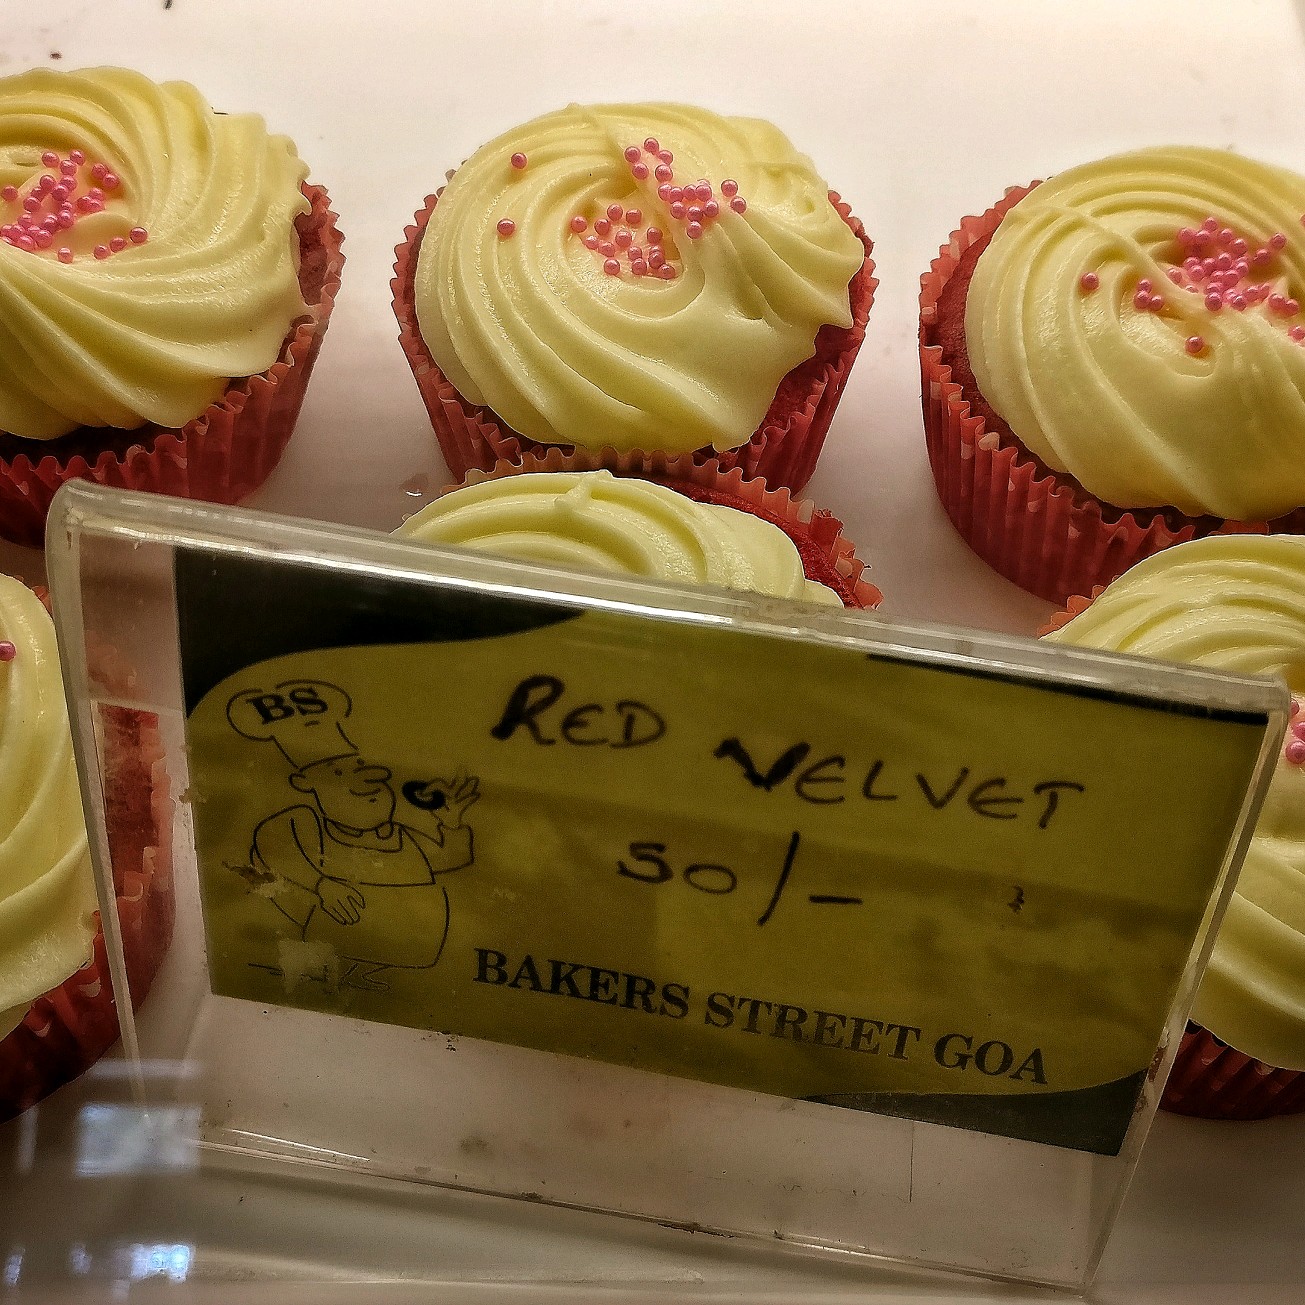 BS
RED VELVET
50/-
BAKERS STREET GOA